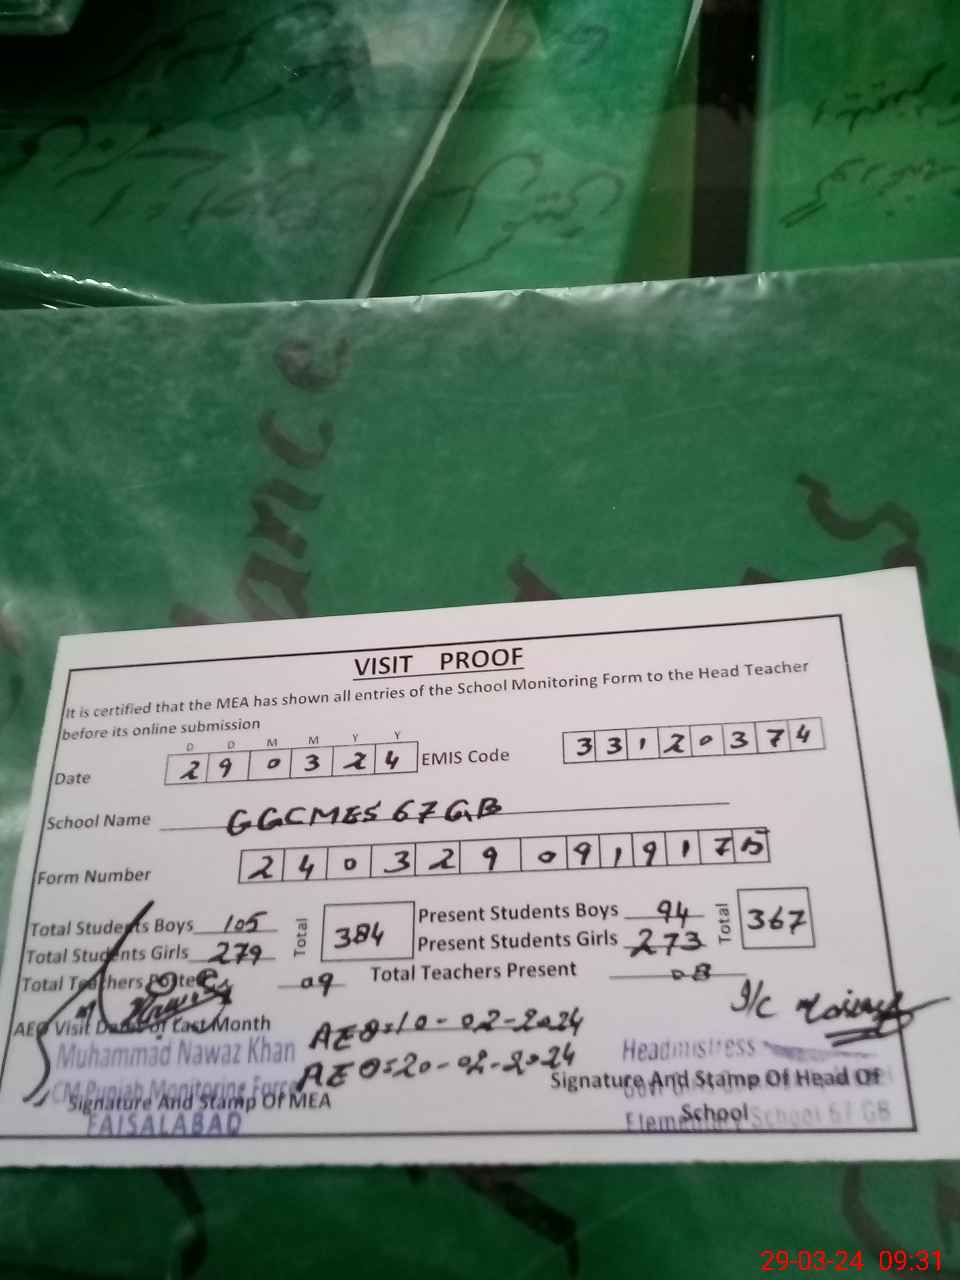 ance
VISIT PROOF
It is certified that the MEA has shown all entries of the School Monitoring Form to the Head Teacher
before its online submission
D D M M Y Y
Date 2 9 0 3 2 4 EMIS Code 3 3 1 2 0 3 7 4
School Name GGCMES 67 GB
Form Number 2 4 0 3 2 9 0 9 1 9 1 7 5
Total Students Boys 105 Total 384 Present Students Boys 94 Total 367
Total Students Girls 279 Present Students Girls 273
Total Teachers Posted 09 Total Teachers Present 08
I/C
AEO Visit Dates of Last Month AEO=10-02-2024
AEO=20-02-2024
Muhammad Nawaz Khan
CM Punjab Monitoring Force
Signature And Stamp Of MEA
FAISALABAD
Headmistress
Signature And Stamp Of Head Of
School
Elementary School 67 GB
29-03-24 09:31